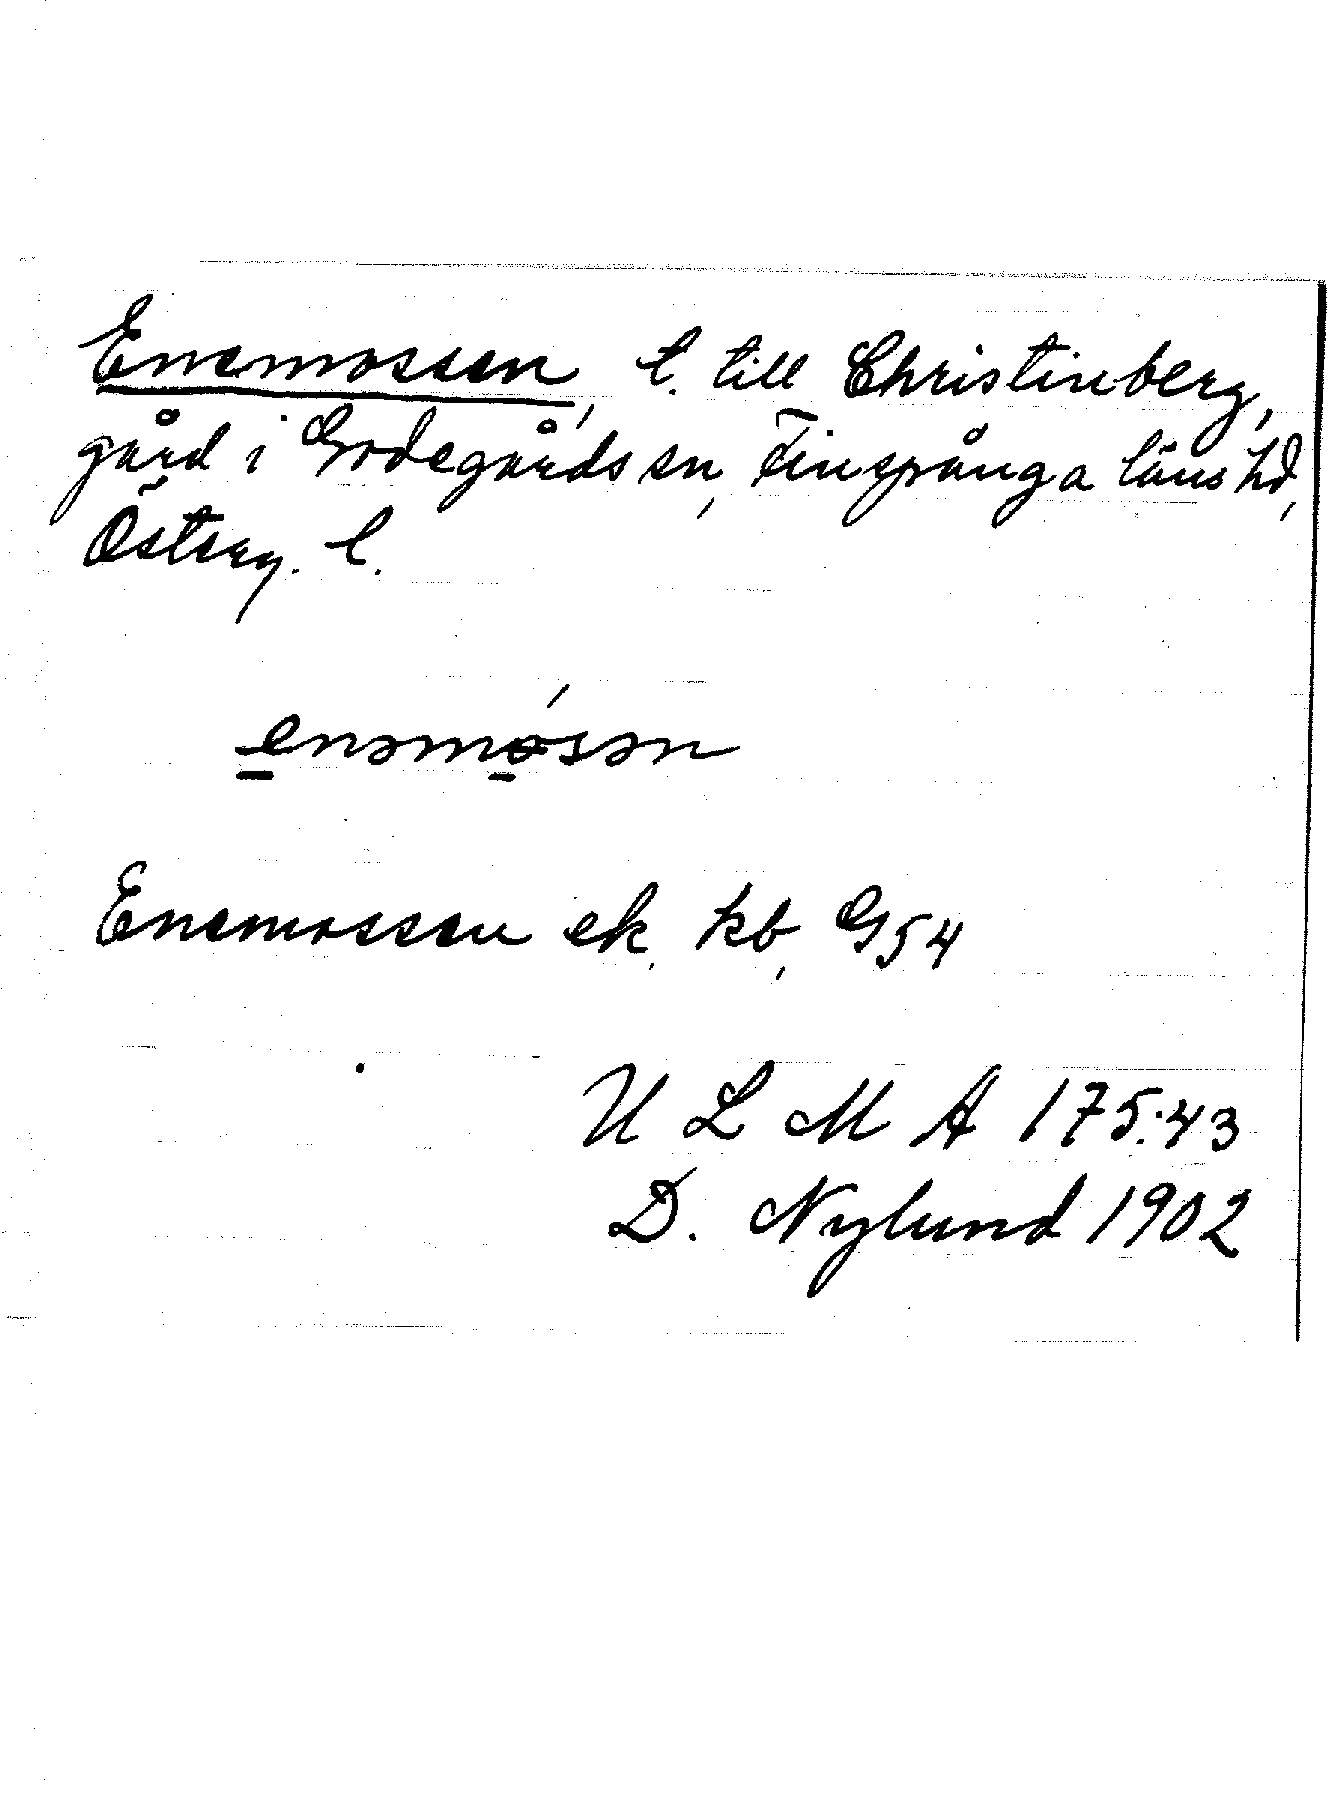 Enemossen, l. till Christineberg,
gård i Godegårds sn, Finspånga läns hd,
Österg. l.
enəmósən
Enemossen ek, kb, G54
U L M A 175:43
D. Nylund 1902